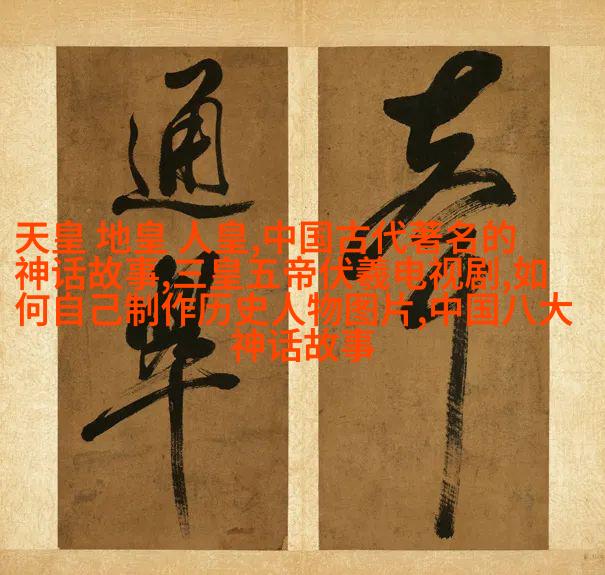 通
天皇 地皇 人皇,中国古代著名的
神话故事,三皇五帝伏羲电视剧,如
何自己制作历史人物图片,中国八大
神话故事